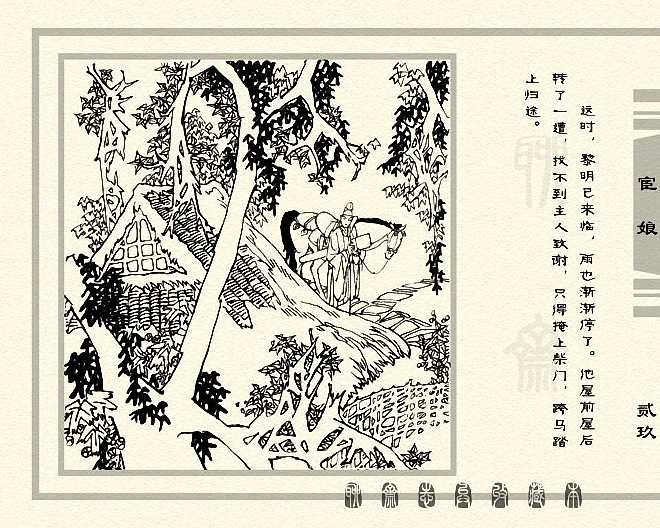 这时，黎明已来临，雨也渐渐停了。他屋前屋后
转了一遭，找不到主人致谢，只得掩上柴门，跨马踏
上归途。
宦娘
贰玖
聊斋志异收藏本